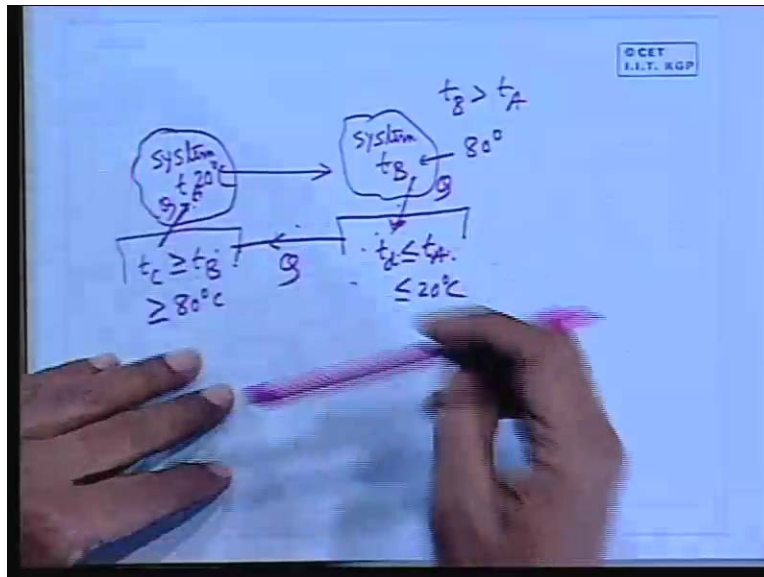 © CET
I.I.T. KGP
t_B > t_A
system
t_A 20°C
Q
system
t_B
80°
Q
t_C ≥ t_B
≥ 80°C
Q
t_d ≤ t_A
≤ 20°C